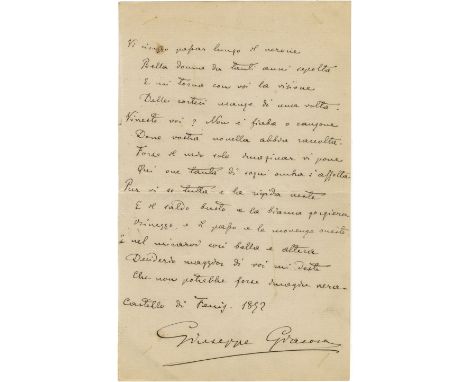 Vi vengo passar lungo il verone
Bella donna da tanti anni sepolta
E mi torna con voi la visione
Delle cortesi di una volta.
Viveste voi? Non è fiaba o canzone
Dove vostra novella abbia raccolta.
Forse il mio solo imaginar vi pone
Qui ove tanta di sogni ombra è affolta
Pur vi so tutta e la rigida veste
E il saldo busto e la bianca gorgiera
e il passo e le movenze oneste
E nel mirarvi così bella e altera
Desiderio maggior di voi mi
Che non potrebbe forse imagin vera-
Castello di Fenis. 1892
Giuseppe Giacosa